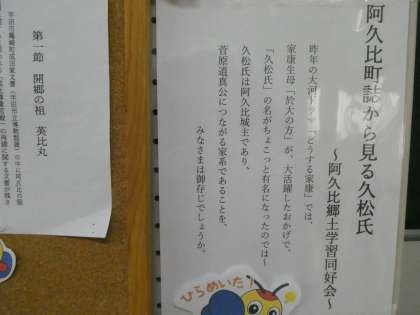 阿久比町誌から見る久松氏
～阿久比郷土学習同好会～
昨年の大河ドラマ「どうする家康」では、
家康生母「於大の方」が、大活躍したおかげで、
「久松氏」の名がちょこっと有名になったのでは～
久松氏は阿久比城主であり、
菅原道真公につながる家系であることを、
みなさまは御存じでしょうか。
ひらめいた！
第一節　開郷の祖　英比丸